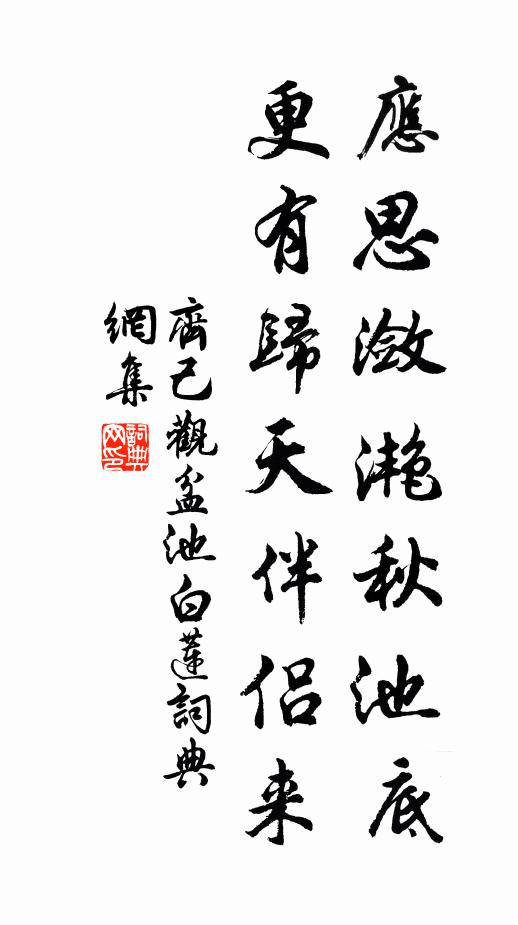 應思瀲滟秋池底
更有歸天伴侶来
齊己觀盆池白蓮詞典
網集
詞典
网印